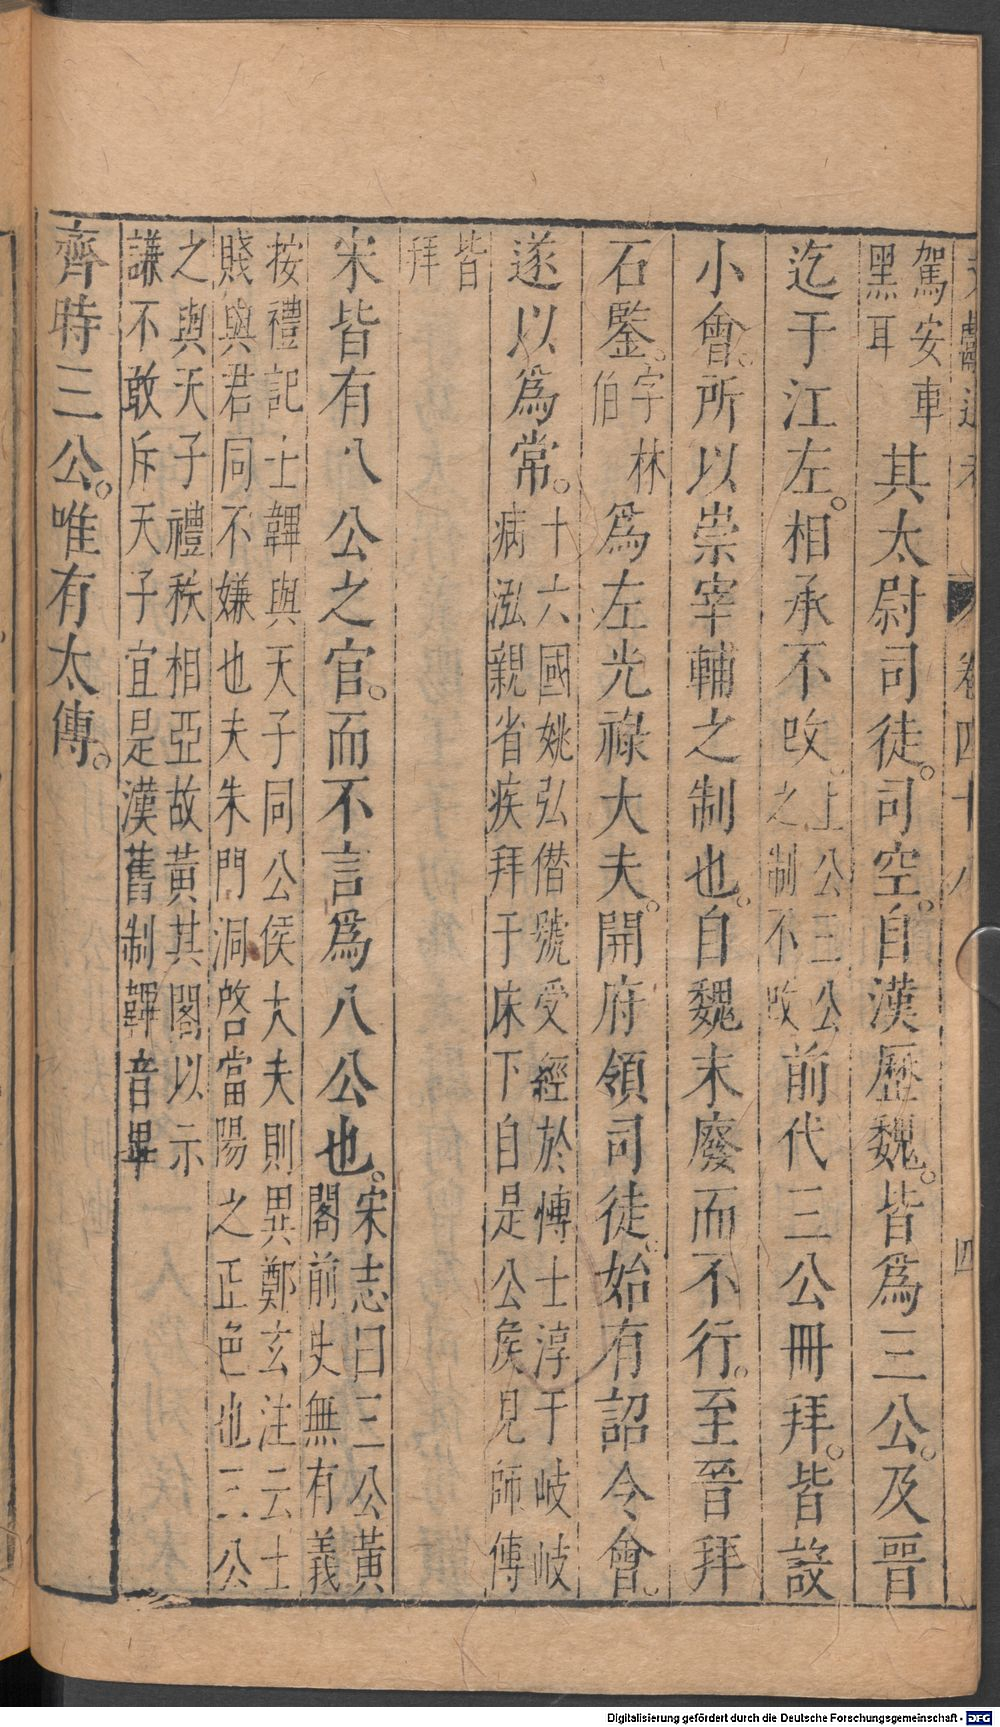 文獻通考 卷四十八 四
駕安車
黑耳
其太尉司徒。司空。自漢歷魏。皆爲三公。及晉
迄于江左。相承不改。
上公三公
之制不改
前代三公冊拜。皆設
小會。所以崇宰輔之制也。自魏末廢而不行。至晉拜
石鑒。
字林
伯
爲左光祿大夫。開府領司徒。始有詔令會。
遂以爲常。
十六國姚弘僣號受經於慱士淳于岐岐
病泓親省疾拜于床下自是公矦見師傅
皆
拜
宋皆有八公之官。而不言爲八公也。
宋志曰三公黃
閣前史無有義
按禮記士韠與天子同公侯大夫則異鄭玄注云士
賤與君同不嫌也夫朱門洞啓當陽之正色也三公
之與天子禮秩相亞故黃其閣以示
謙不敢斥天子宜是漢舊制韠音畢
齊時三公。唯有太傅。
Digitalisierung gefördert durch die Deutsche Forschungsgemeinschaft - DFG